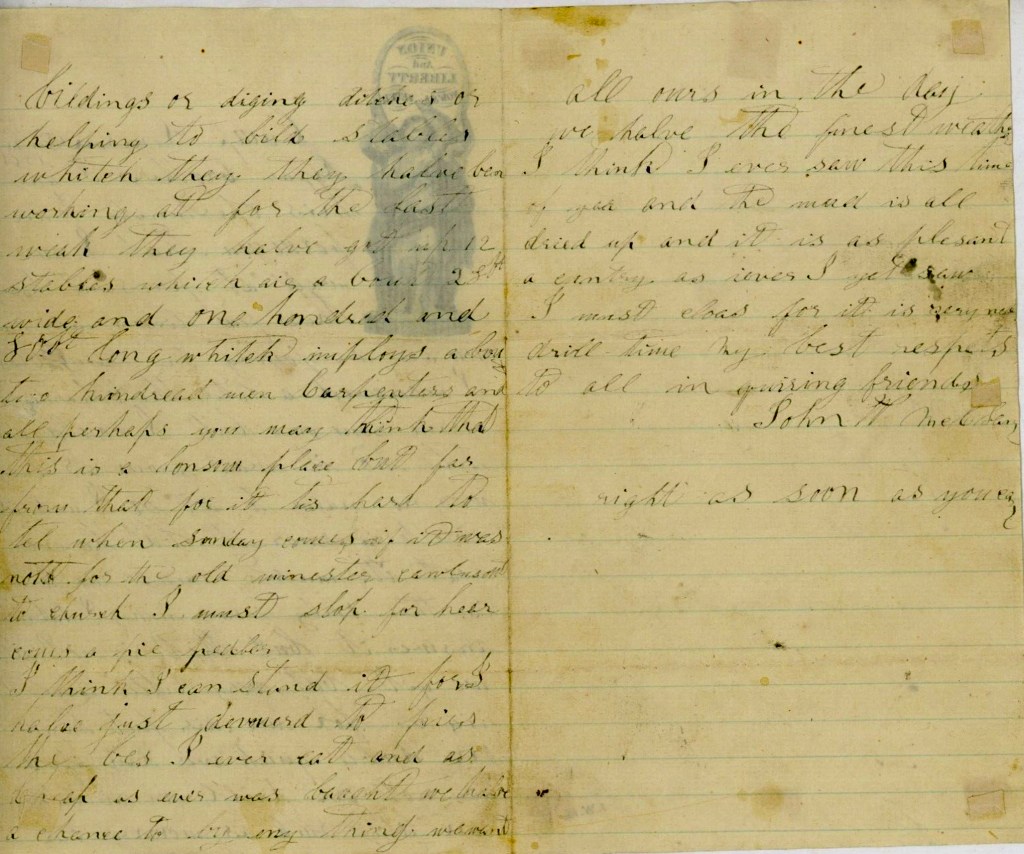 bildings or diging ditches or
helping to bild stables
whitch they they halve ben
working at for the last
weak they halve got up 12
stables which are a bout 28ft
wide and one hondred and
80ft long whitch imploys about
two hundread men Carpenters and
all perhaps you may think that
this is a lonsom place but far
from that for it tis hard to
tel when sonday comes if it was
nott for the old minester
to church I must stop for hear
coms a pie pedler
I think I can stand it for I
halve just to pies
the bes I ever eat and as
cheap as ever was baught we halve
a chance to eny thing we want
all ours in the day
we halve the finest weather
I think I ever saw this time
of yea and the mud is all
dried up and it is as plesant
a cuntry as iever I yet saw
I must cloas for it is very near
drill time my best respects
to all in quiring friends
John
right as soon as you can
UNION
And
LIBERTY